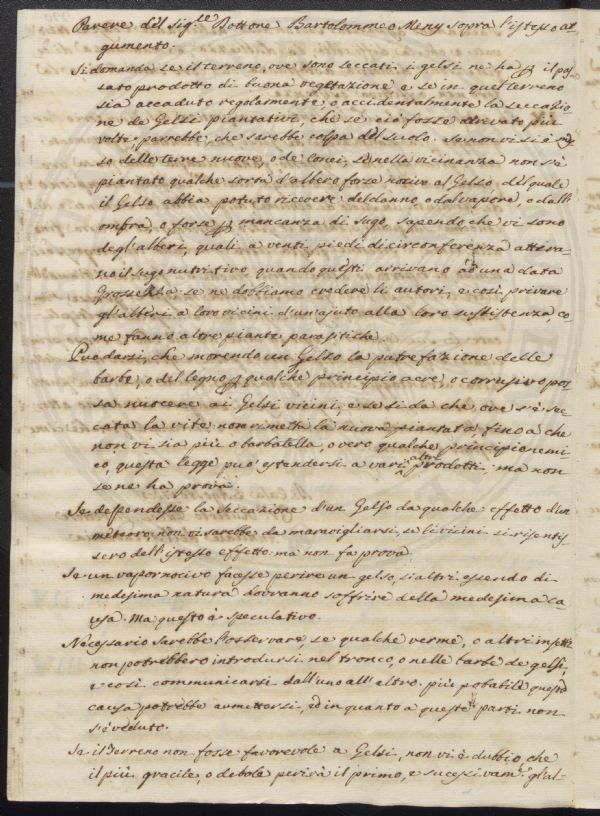 Parere del Sig.re Dottore Bartolommeo Meny sopra l'istesso ar-
gumento.
Si domanda se il terreno, ove sono seccati i gelsi ne ha p il pas-
sato prodotto di buona vegetazione e se in quel terreno
sia accaduto regolarmente, o accidentalmente la seccazio-
ne de Gelsi piantativi, che se ciò fosse arrivato più
volte parrebbe che sarebbe colpa del suolo. Se non vi si è
so delle terre nuove, o de conci, se nella vicinanza non s'è
piantato qualche sorta d'albero forse nocivo al Gelso del quale
il Gelso abbia potuto ricevere del danno, o dal vapore, o dall'
ombra, o forse p mancanza di sugo, sapendo che vi sono
degl'alberi, quali a venti piedi di circonferenza attira-
no il sugo nutritivo, quando questi arrivano ad una data
Grossezza se ne dobbiamo credere li autori, e così privare
gl'altri a loro vicini d'un ajuto alla loro sussistenza, co-
me fanno altre piante parasitiche.
Può darsi, che morendo un Gelso la putrefazione delle
barbe, o del legno p qualche principio acre, o corrusivo pos-
sa nuocere ai Gelsi vicini, e se si da che ove s'è sec-
cata la vite, non rimetta la nuova piantata fino a che
non vi sia più o barbatella, o vero qualche principio nemi-
co, questa legge può estendersi a vari altri prodotti, ma non
se ne ha prova.
Se dependesse la seccazione d'un Gelso da qualche effetto d'un
meteoro, non vi sarebbe da maravigliarsi, se li vicini si risentis-
sero dell'istesso effetto ma non fa prova.
Se un vapor nocivo facesse perire un gelso, si altri essendo di
medesima natura dovranno soffrire della medesima ca-
usa. Ma questo è speculativo.
Necessario sarebbe l'osservare, se qualche verme, o altri insetti
non potrebbero introdursi nel tronco, o nelle barbe de gelsi,
e così communicarsi dall'uno all'altro. più pobabile questa
causa potrebbe ammettersi, ed in quanto a queste parti non
s'è veduto.
Se il Terreno non fosse favorevole a Gelsi, non vi è dubbio, che
il più gracile, o debole perirà il primo, e sucessivam.e gl'al-